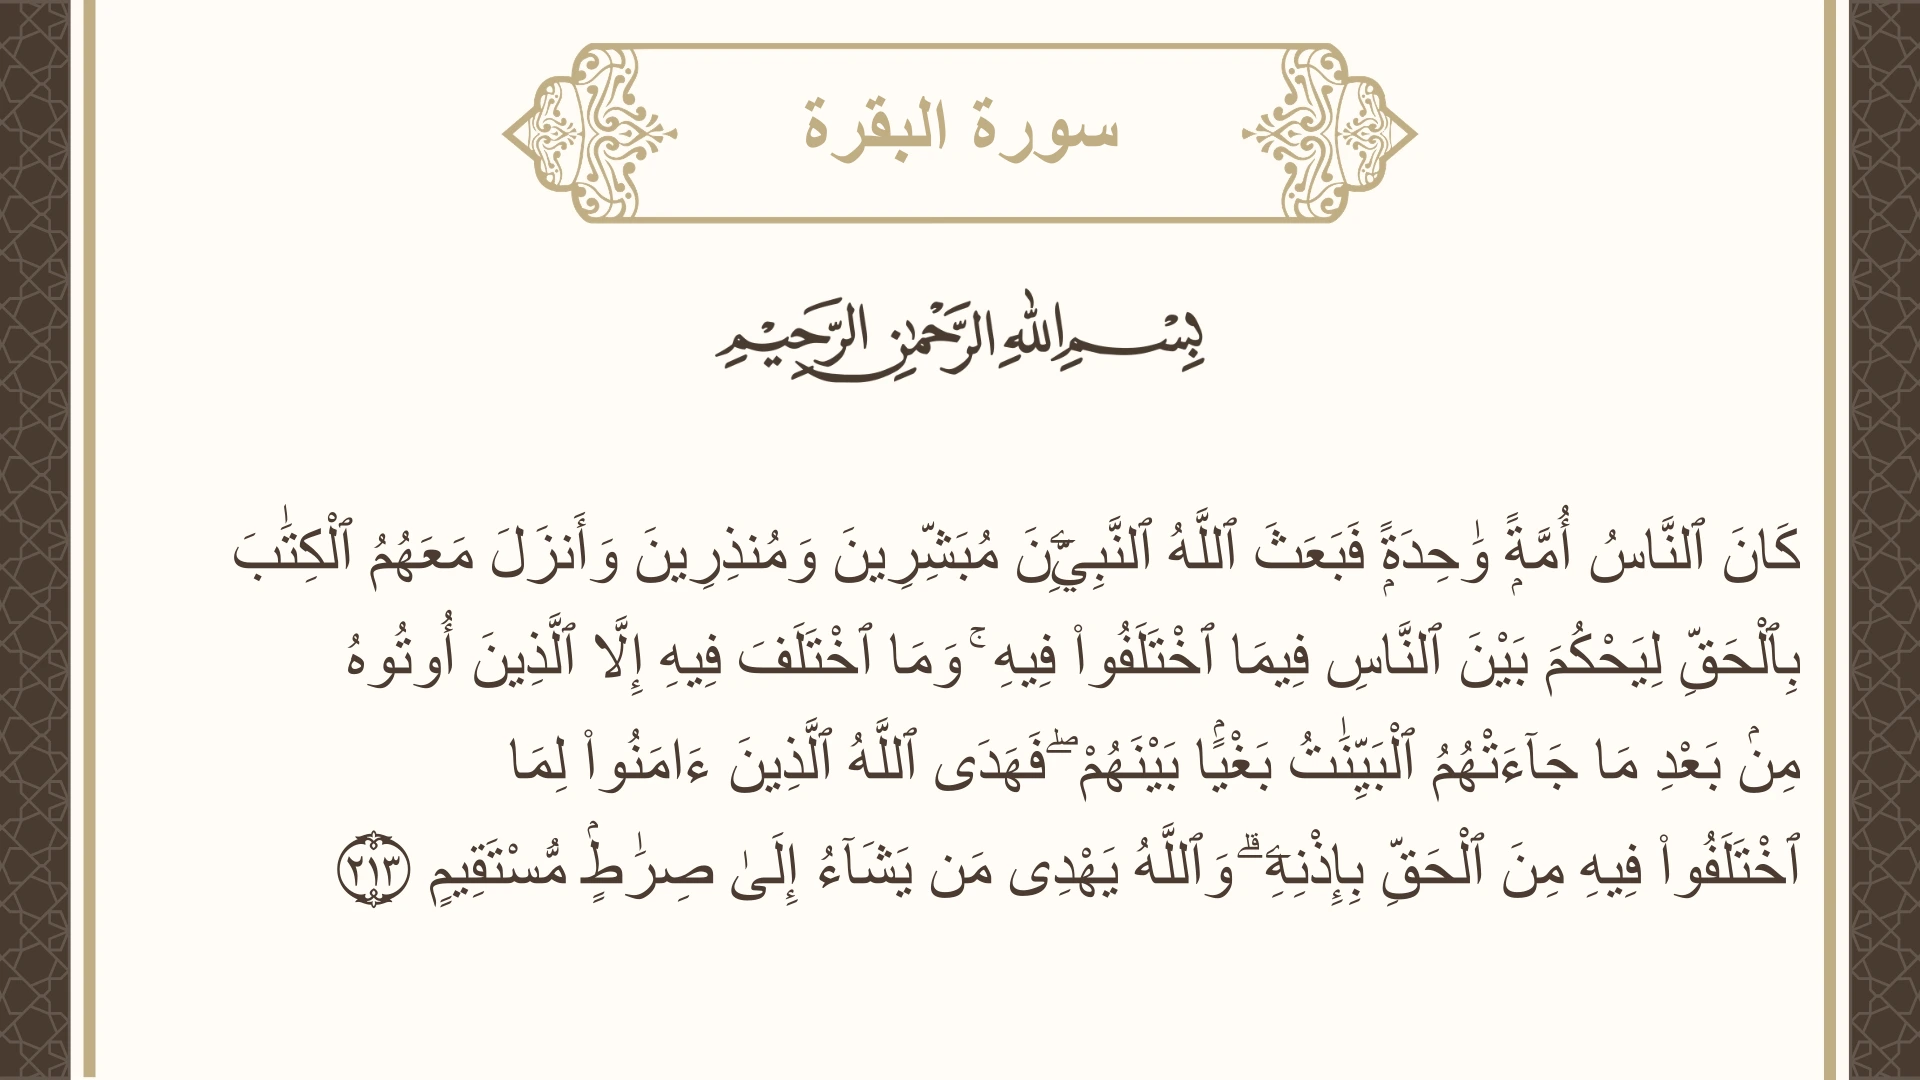 سورة البقرة
بِسْمِ اللهِ الرَّحْمٰنِ الرَّحِيْمِ
كَانَ ٱلنَّاسُ أُمَّةًۭ وَٰحِدَةًۭ فَبَعَثَ ٱللَّهُ ٱلنَّبِيِّـۧنَ مُبَشِّرِينَ وَمُنذِرِينَ وَأَنزَلَ مَعَهُمُ ٱلْكِتَٰبَ
بِٱلْحَقِّ لِيَحْكُمَ بَيْنَ ٱلنَّاسِ فِيمَا ٱخْتَلَفُوا۟ فِيهِ ۚ وَمَا ٱخْتَلَفَ فِيهِ إِلَّا ٱلَّذِينَ أُوتُوهُ
مِنۢ بَعْدِ مَا جَآءَتْهُمُ ٱلْبَيِّنَٰتُ بَغْيًۢا بَيْنَهُمْ ۖ فَهَدَى ٱللَّهُ ٱلَّذِينَ ءَامَنُوا۟ لِمَا
ٱخْتَلَفُوا۟ فِيهِ مِنَ ٱلْحَقِّ بِإِذْنِهِۦ ۗ وَٱللَّهُ يَهْدِى مَن يَشَآءُ إِلَىٰ صِرَٰطٍۢ مُّسْتَقِيمٍ ٢١٣